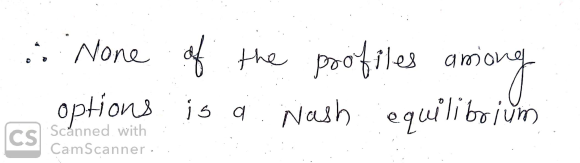 ∴ None of the profiles among
options is a Nash equilibrium
CS Scanned with
CamScanner